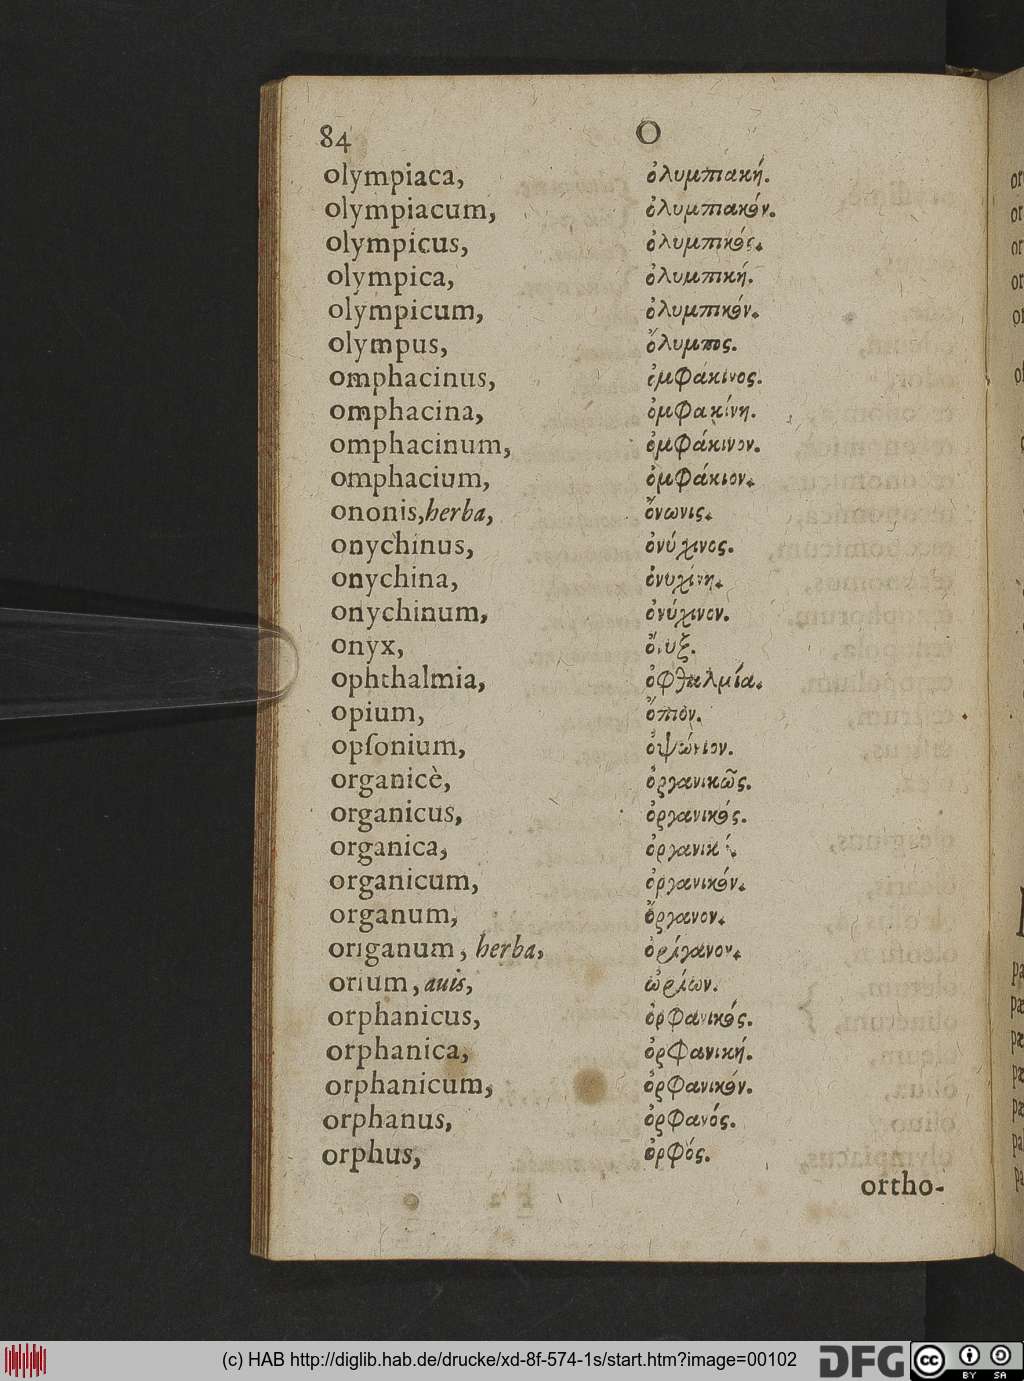 84 O
olympiaca, ὀλυμπιακή.
olympiacum, ὀλυμπιακόν.
olympicus, ὀλυμπικός.
olympica, ὀλυμπική.
olympicum, ὀλυμπικόν.
olympus, ὄλυμπος.
omphacinus, ὀμφάκινος.
omphacina, ὀμφακίνη.
omphacinum, ὀμφάκινον.
omphacium, ὀμφάκιον.
ononis, herba, ὄνωνις.
onychinus, ὀνύχινος.
onychina, ὀνυχίνη.
onychinum, ὀνύχινον.
onyx, ὄνυξ.
ophthalmia, ὀφθαλμία.
opium, ὄπιον.
opſonium, ὀψώνιον.
organicè, ὀργανικῶς.
organicus, ὀργανικός.
organica, ὀργανική.
organicum, ὀργανικόν.
organum, ὄργανον.
origanum, herba, ὀρίγανον.
orium, auis, ὠρίων.
orphanicus, ὀρφανικός.
orphanica, ὀρφανική.
orphanicum, ὀρφανικόν.
orphanus, ὀρφανός.
orphus, ὀρφός.
ortho-
(c) HAB http://diglib.hab.de/drucke/xd-8f-574-1s/start.htm?image=00102 DFG cc BY SA